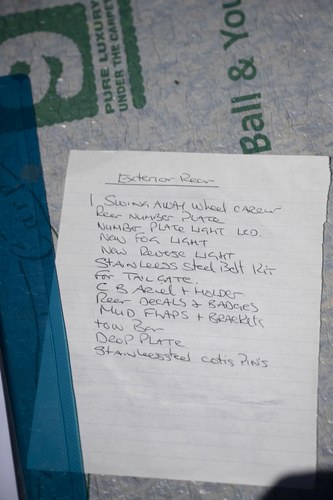 PURE LUXURY
UNDER THE CARPET
Ball & You
Exterior Rear
1 Swing AWAY Wheel CARRIER
Rear Number PLATE
NUMBER PLATE LIGHT LED.
New FOG LIGHT
New Reverse LIGHT
STAINLESS Steel Bolt Kit
For TAILGATE.
C B Ariel + HOLDER
Rear DECALS & BADGES
MUD FLAPS + BRACKETS
tow Bar
DROP PLATE
Stainlessteel PINS